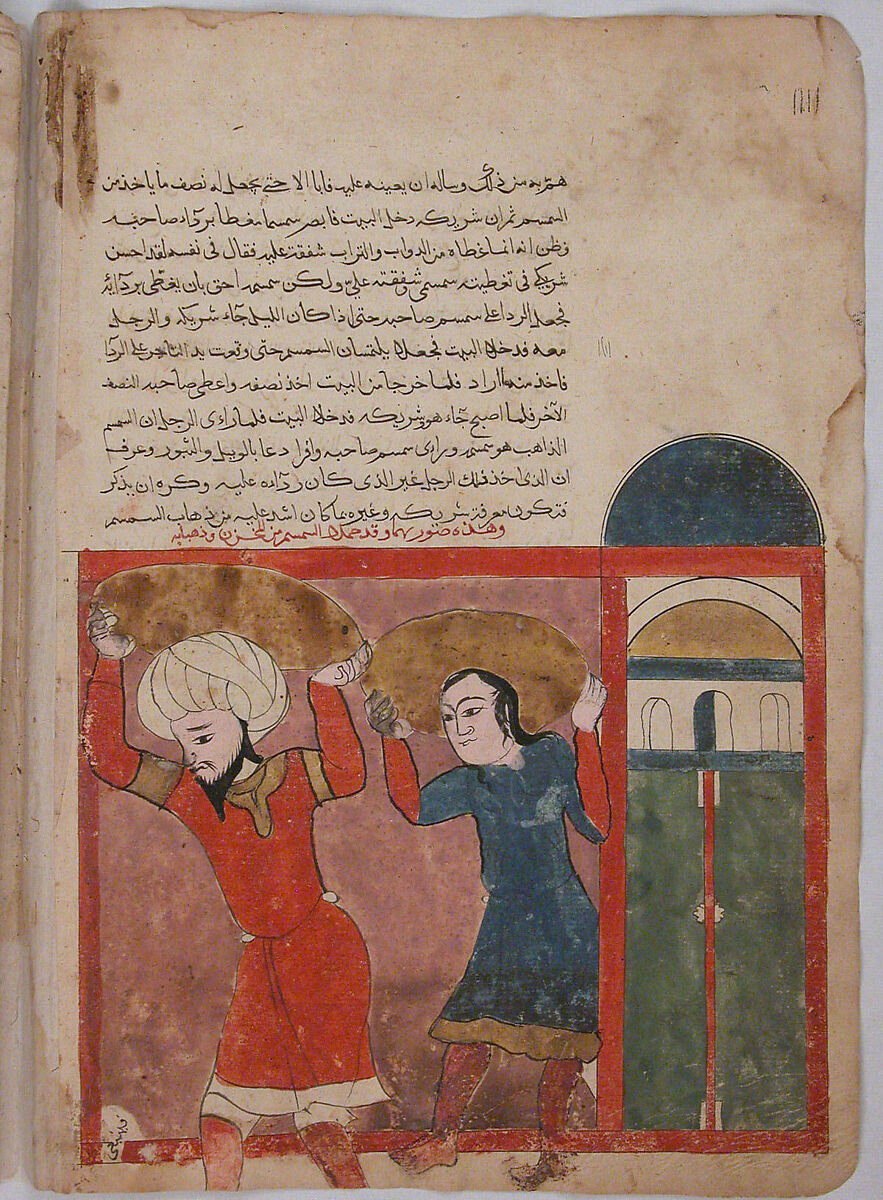 همّ به من ذلك وساله ان يعينه عليه فابا الا حتى يجعل له نصف ما ياخذ من
السمسم ثم ان شريكه دخل البيت فابصر سمسما مغطا بردآء صاحبه
وظن انه انما غطاه من الدواب والتراب شفقة عليه فقال في نفسه لقد احسن
شريكي في تغطيته سمسمي وشفقته عليّ ولكن سمسمه احق بان يغطى بردآئه
فجعل الردا على سمسم صاحبه حتى اذا كان الليل جآء شريكه والرجل
معه فدخلا البيت فجعلا يلتمسان السمسم حتى وقعت يد التاجر على الردآ
فاخذ منه ما اراد فلما خرجا من البيت اخذ نصفه واعطى صاحبه النصف
الآخر فلما اصبح جآء هو شريكه فدخلا البيت فلما راءى الرجل ان السمسم
الذاهب هو سمسمه وراى سمسم صاحبه وافرا دعا بالويل والثبور وعرف
ان الذى اخذ ذلك الرجل غير الذى كان ردآءه عليه وكره ان يذكر
فتكون معرفة شريكه وغيره بما كان اشد عليه من ذهاب السمسم
وهذه صورتهما وقد حملا السمسم من المخزن وذهبا به